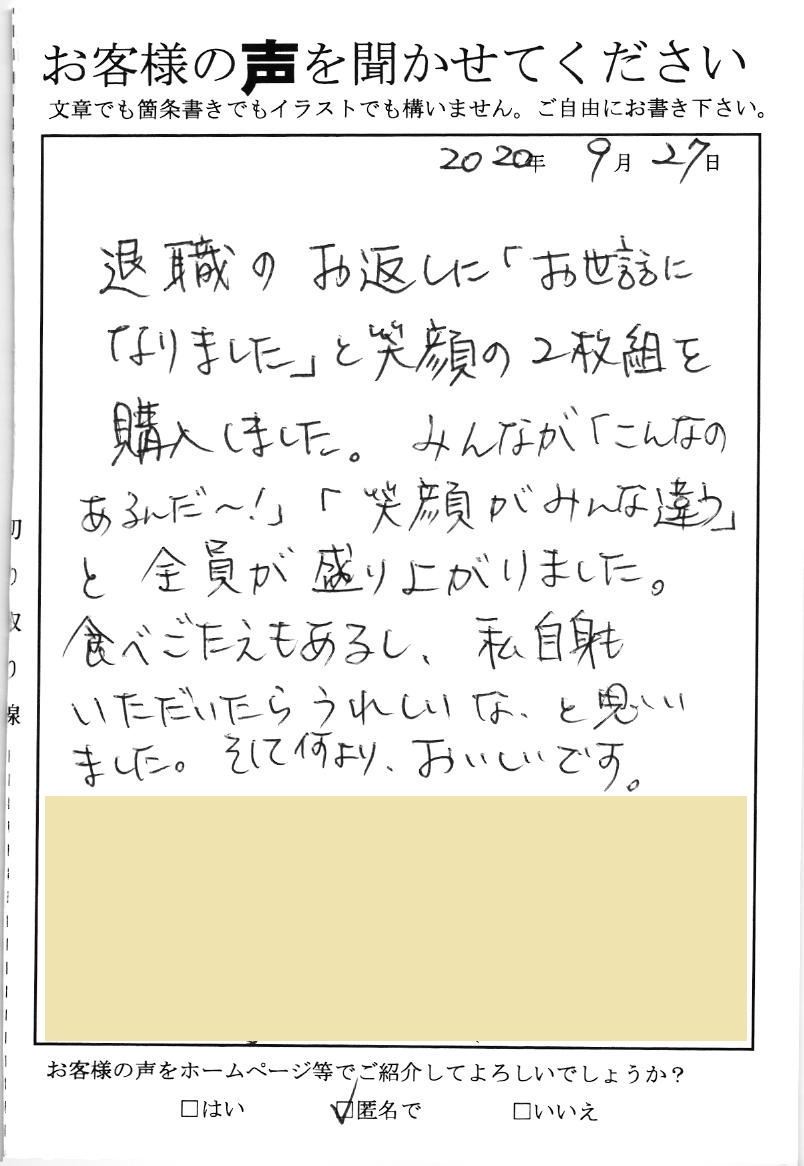 お客様の声を聞かせてください
文章でも箇条書きでもイラストでも構いません。ご自由にお書き下さい。
2020年 9月 27日
退職の お返しに「お世話に
なりました」と笑顔の 2枚組を
購入しました。 みんなが「こんなの
あるんだ〜!」「笑顔がみんな違う」
と 全員が 盛り上がりました。
食べごたえもあるし、 私自身も
いただいたらうれしいな、と思い
ました。そして何より、おいしいです。
切り取り線
お客様の声をホームページ等でご紹介してよろしいでしょうか?
□はい ☑匿名で □いいえ